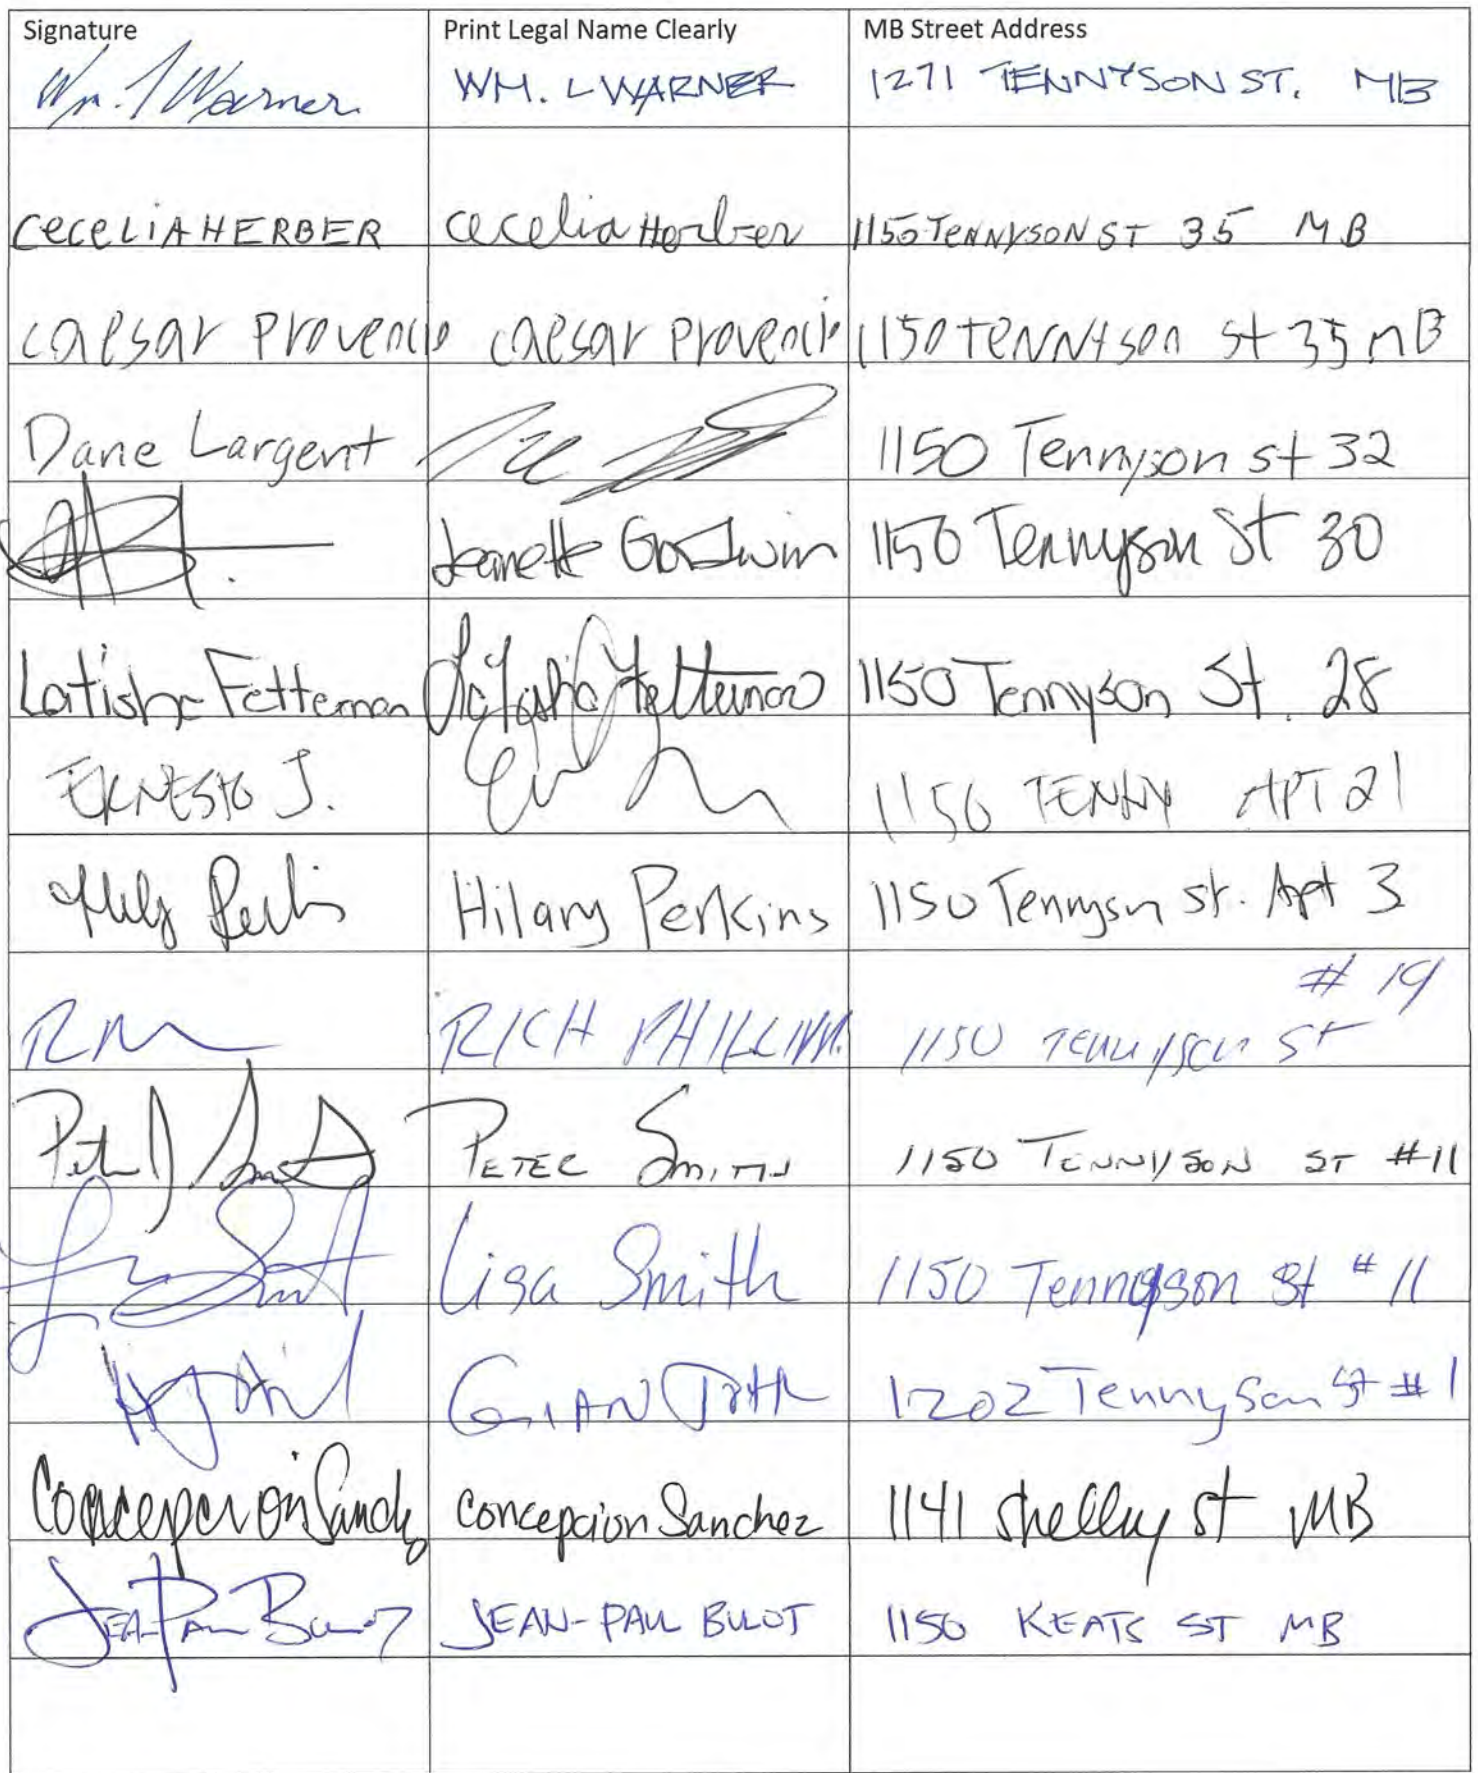 Signature Print Legal Name Clearly MB Street Address
Wm. L Warner WM. L WARNER 1271 TENNYSON ST. MB
CECELIA HERBER Cecelia Herber 1150 TENNYSON ST 35 MB
caesar Provencio caesar Provencio 1150 TENNYson st 35 MB
Dane Largent 1150 Tennyson st 32
Jeanette Goodwin 1150 Tennyson St 30
Latisha Fetterman Latasha Fetterman 1150 Tennyson St. 28
ERNESTO J. 1150 TENNY APT 21
Hilary Perkins 1150 Tennyson st. Apt 3
# 19
RICH 1150 Tennyson St
Peter J Smith PETER SMITH 1150 TENNYSON ST #11
Lisa Smith 1150 Tennyson St # 11
GIAN Toth 1202 Tennyson St # 1
Concepcion Sanchez concepcion Sanchez 1141 Shelley st MB
JEAN-PAUL BULOT JEAN-PAUL BULOT 1150 KEATS ST MB